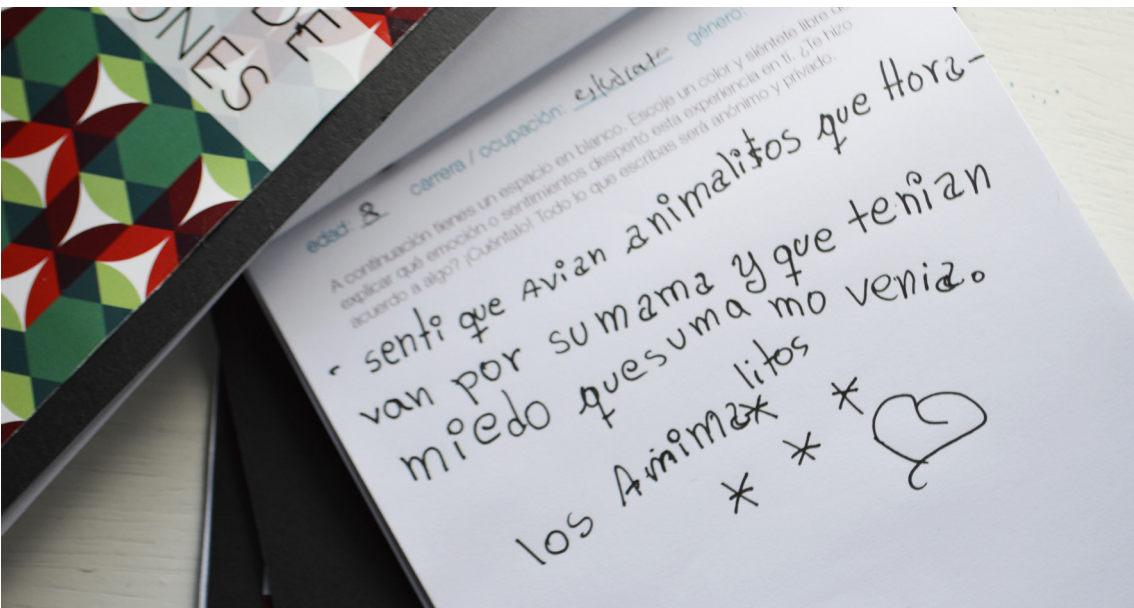 ONES
DE
edad: 8 carrera / ocupación: estudiante género:
A continuación tienes un espacio en blanco. Escoje un color y siéntete libre de
explicar qué emoción o sentimientos despertó esta experiencia en ti. ¿Te hizo
acuerdo a algo? ¡Cuéntalo! Todo lo que escribas será anónimo y privado.
- senti que Avian animalitos que Hora-
van por su mama y que tenian
miedo que suma mo venia.
los Animalitos